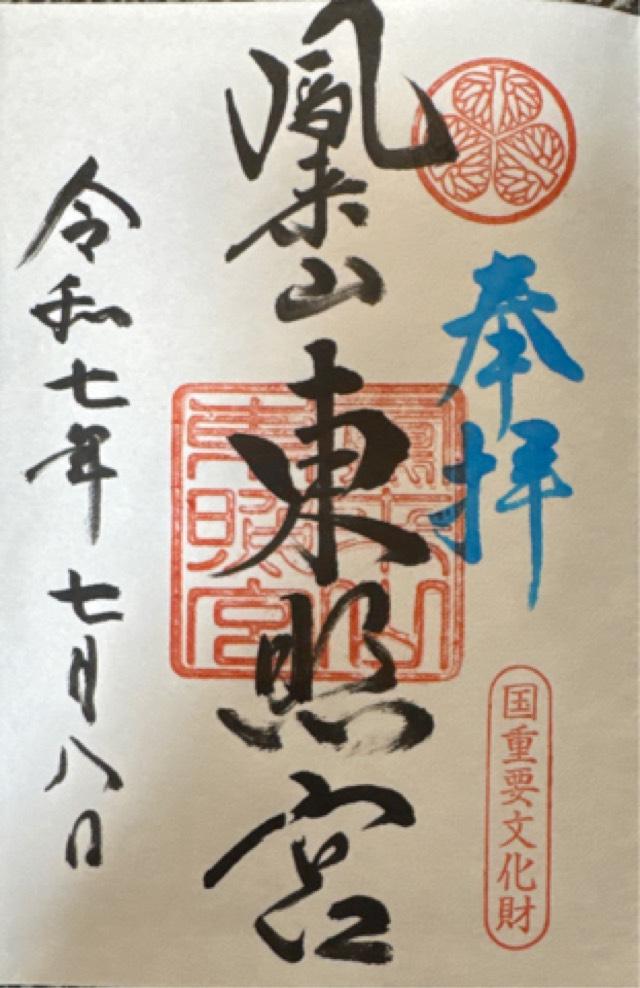 奉拝
国重要文化財
鳳来山東照宮
鳳来山東照宮
令和七年七月八日